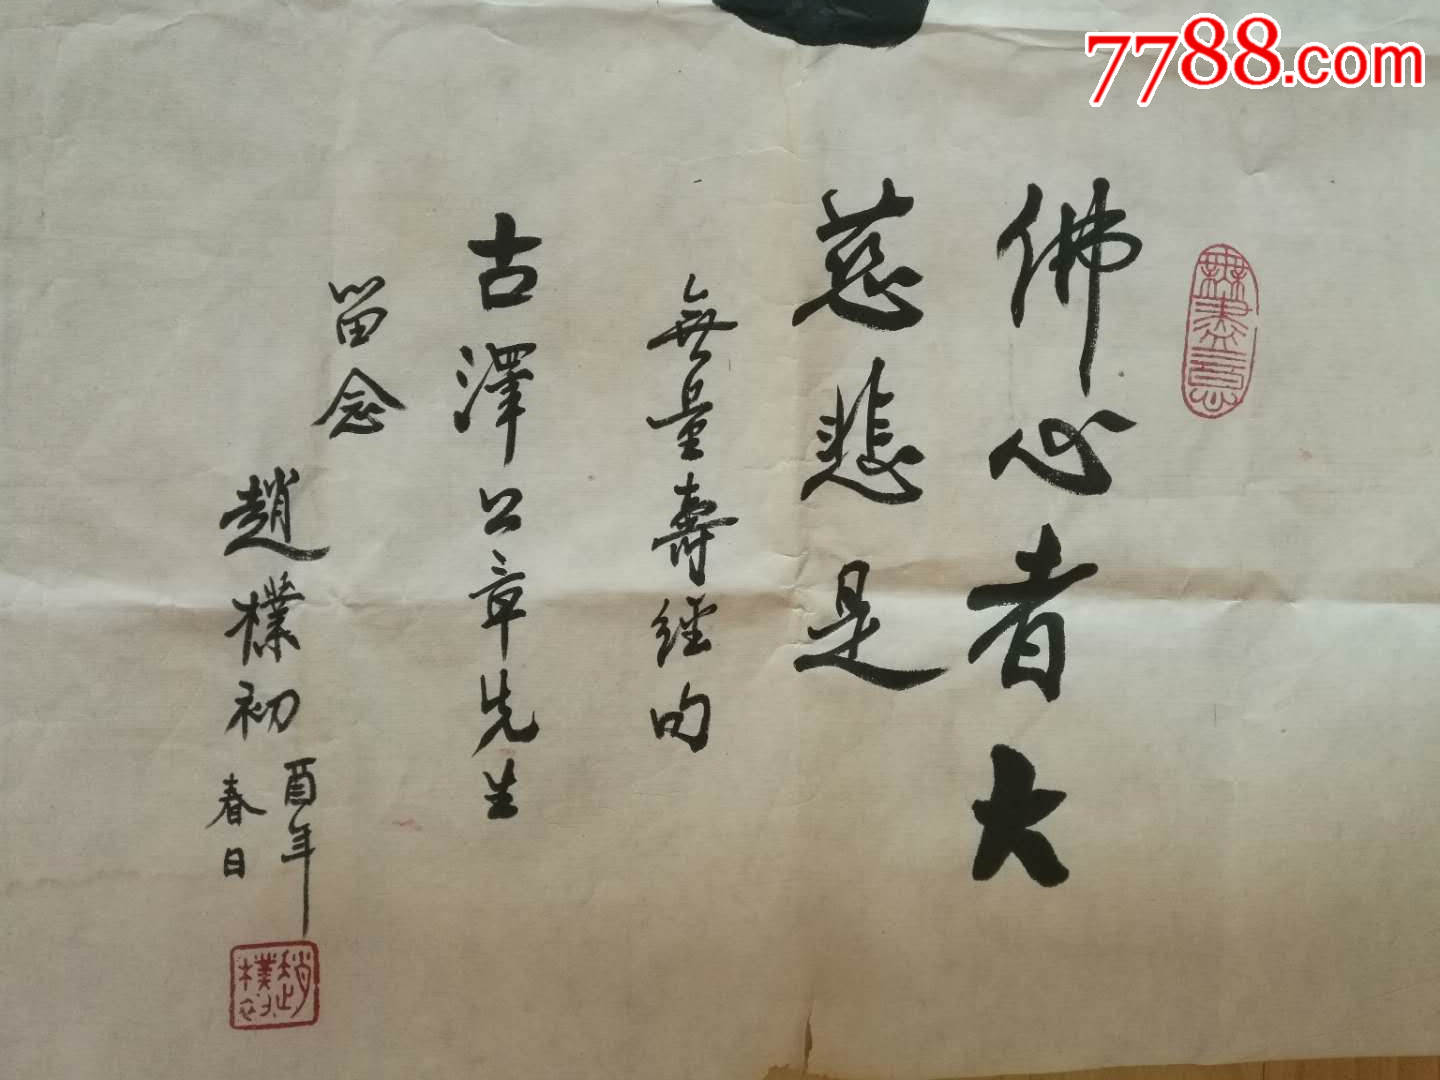 7788.com
無盡意
佛心者大
慈悲是
無量壽經句
古澤公章先生
留念
趙樸初
酉年
春日
趙樸初